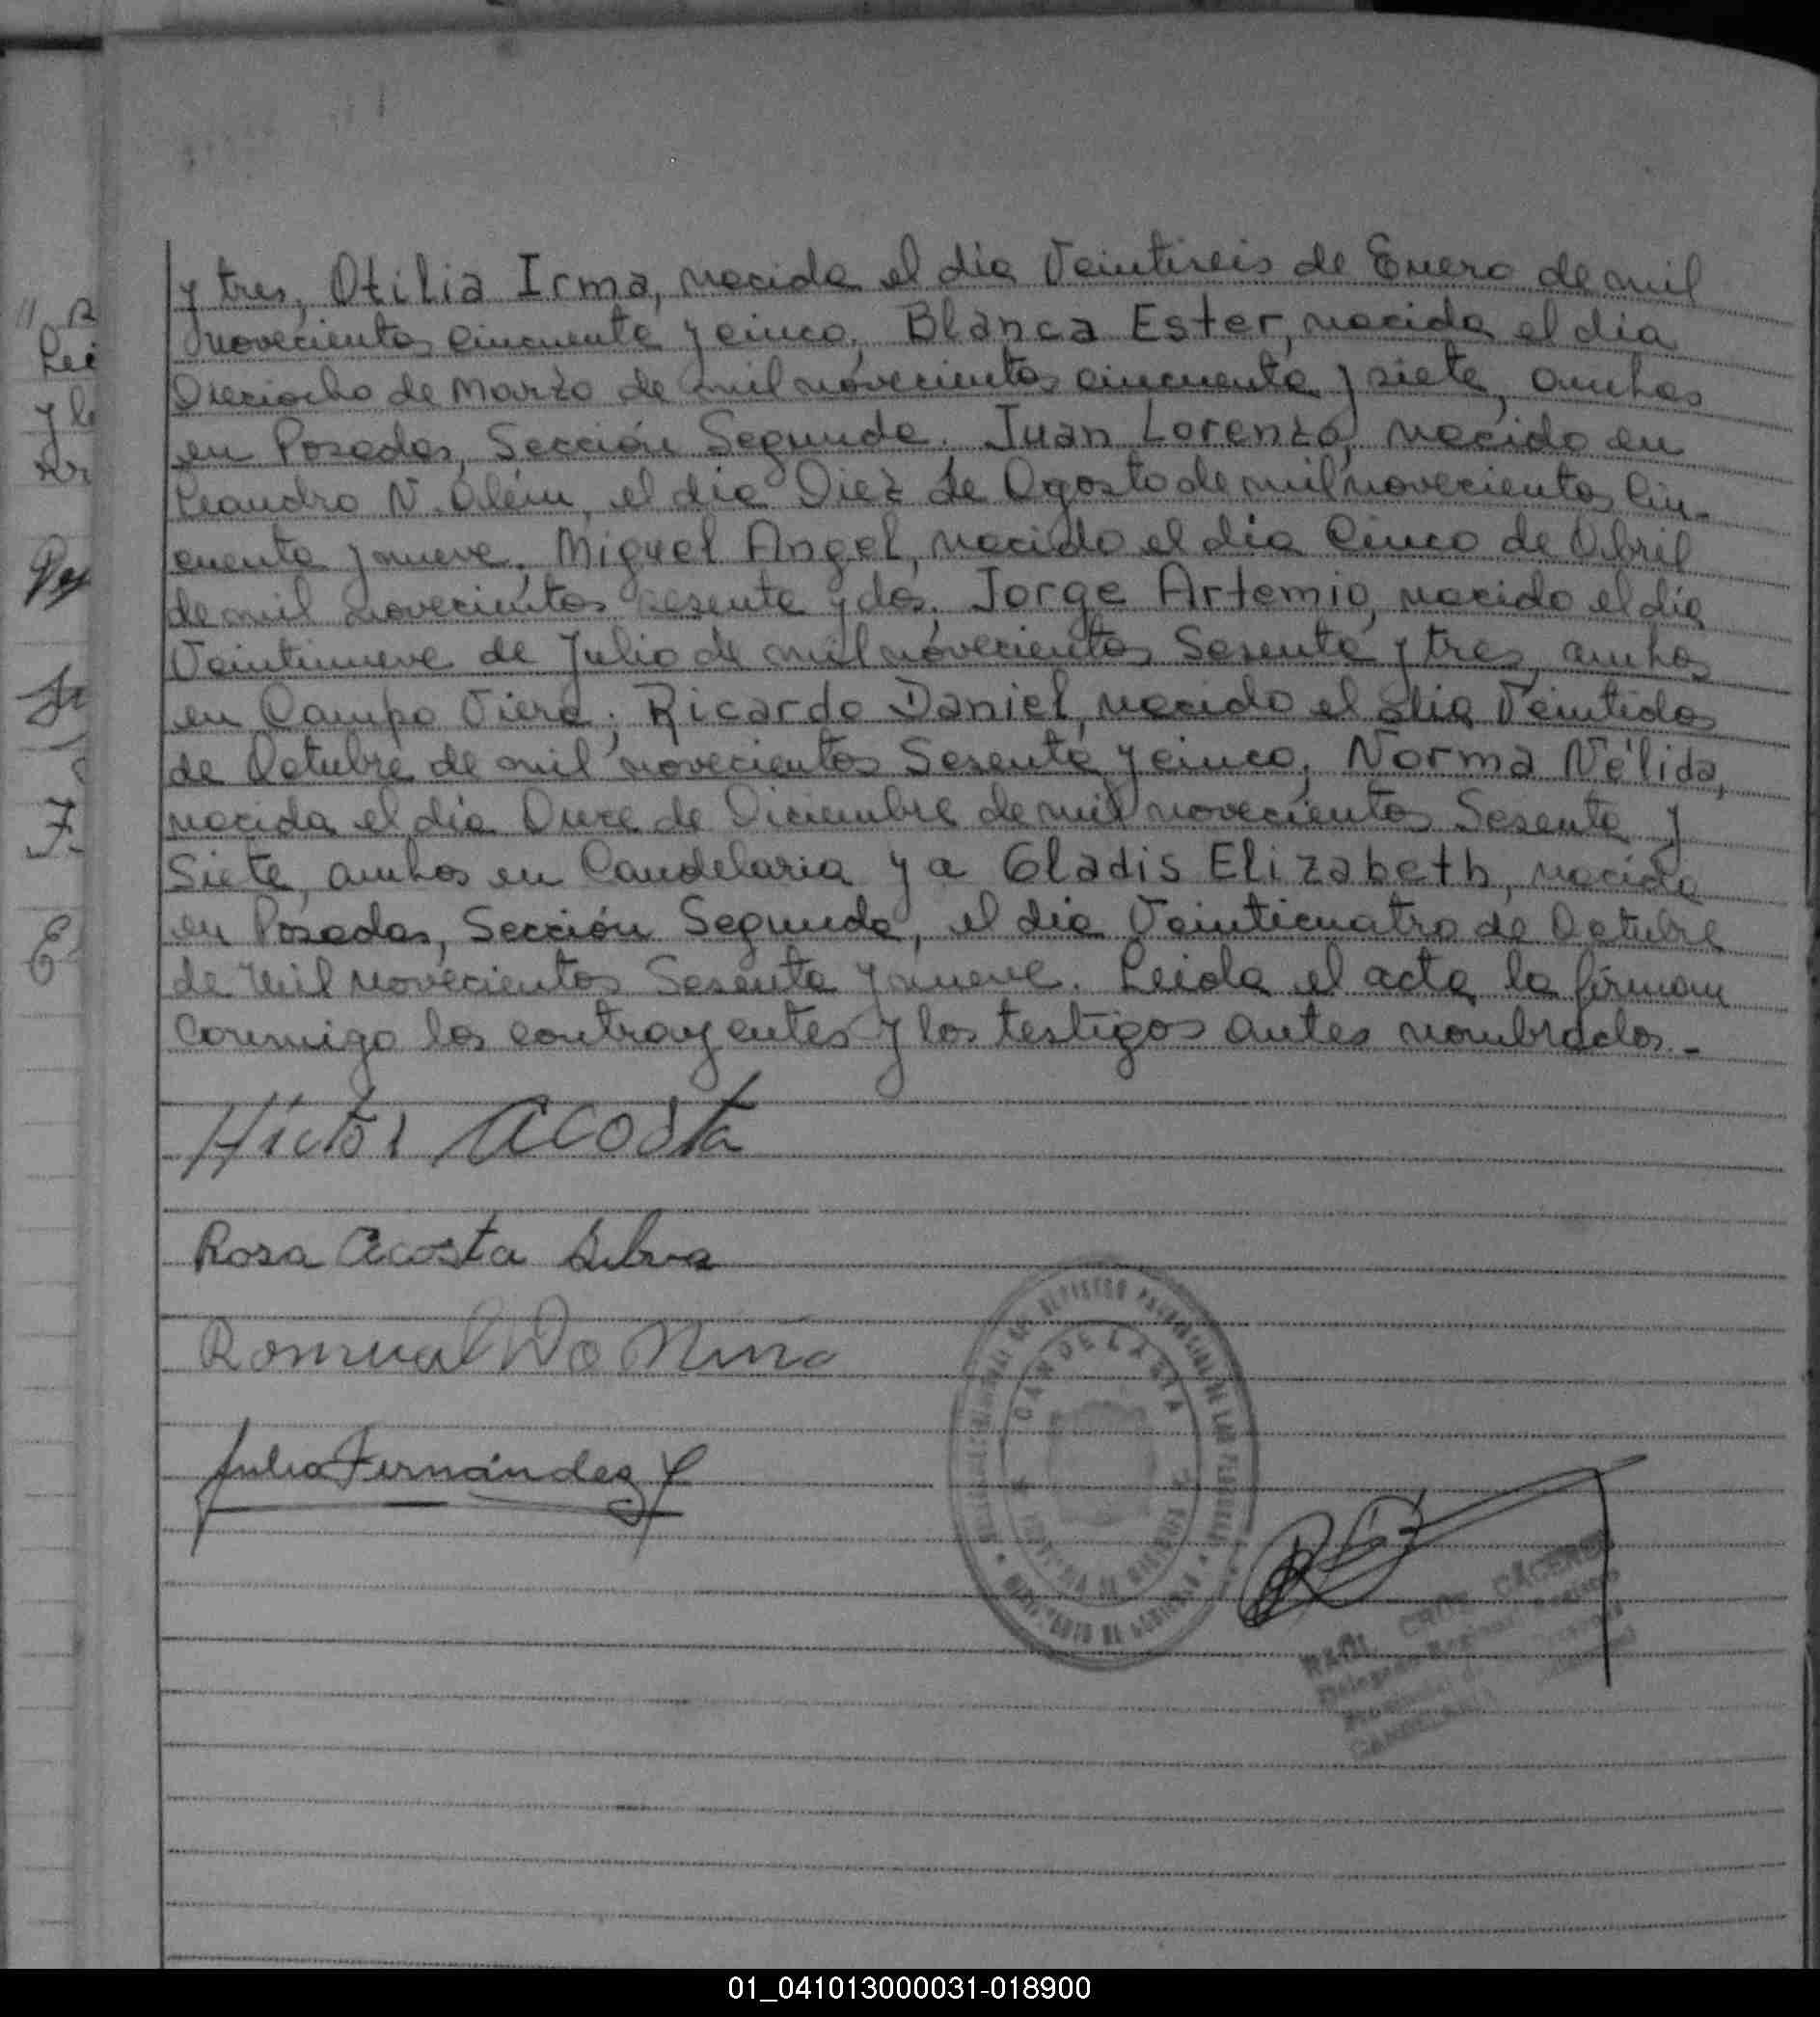 y tres, Otilia Irma, nacida el día Veintiseis de Enero de mil
novecientos cincuenta y cinco, Blanca Ester, nacida el día
Dieciocho de Marzo de mil novecientos cincuenta y siete, ambas
en Posadas, Sección Segunda. Juan Lorenzo, nacido en
Leandro N. Além, el día Diez de Agosto de mil novecientos cin-
cuenta y nueve, Miguel Angel, nacido el día Cinco de Abril
de mil novecientos sesenta y dos, Jorge Artemio, nacido el día
Veintinueve de Julio de mil novecientos Sesenta y tres, ambos
en Campo Viera; Ricardo Daniel, nacido el día Veintidos
de Octubre de mil novecientos Sesenta y cinco, Norma Nélida,
nacida el día Once de Diciembre de mil novecientos Sesenta y
Siete, ambos en Candelaria y a Gladis Elizabeth, nacida
en Posadas, Sección Segunda, el día Veinticuatro de Octubre
de Mil novecientos Sesenta y nueve. Leida el acta la firman
conmigo los contrayentes y los testigos antes nombrados.-
Hictor Acosta
Rosa Acosta Silva
RomualDo
Julio Fernández
CANDELARIA
RAUL CRUZ CACERES
Delegado Regional Registro
Provincial de las Personas
CANDELARIA
01_041013000031-018900